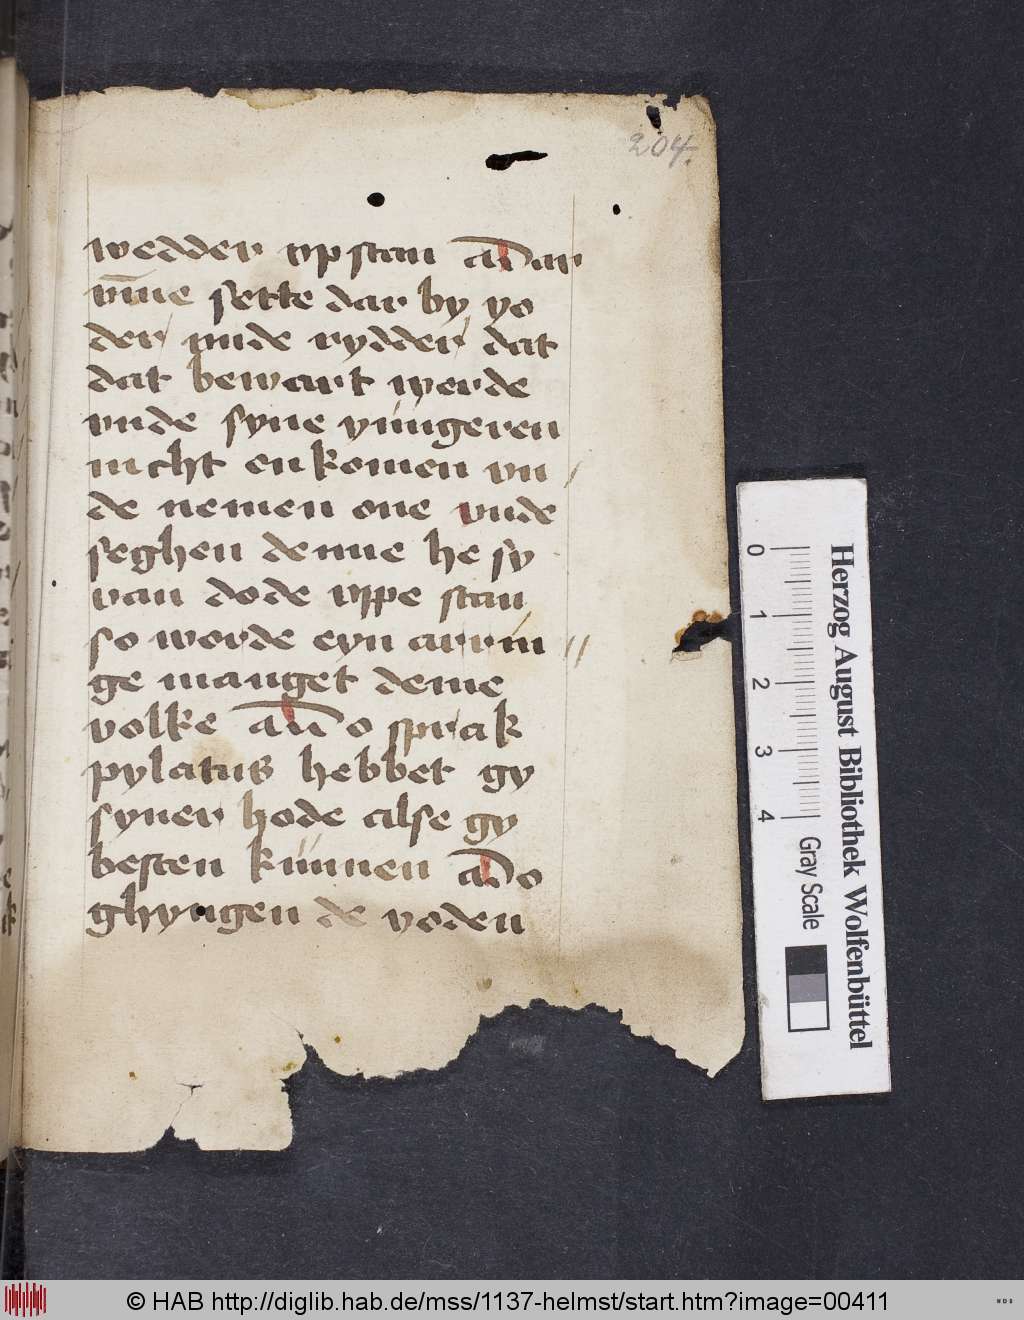 204.
wedder vp stan an̄ ar
vm̄e sette dar by yo
der vnde rydder dat
dat bewart werde
vnde syne yungeren
nicht en komen vn
de nemen one vnde
seghen deme he sy
van dode vppe stan
so worde eyn
ge manget deme
volke an̄ o sprak
pylatus hebbet gy
syner hode alse gy
besten kunnen ado
ghyngen de yoden
0 1 2 3 4
Gray Scale
Herzog August Bibliothek Wolfenbüttel
© HAB http://diglib.hab.de/mss/1137-helmst/start.htm?image=00411